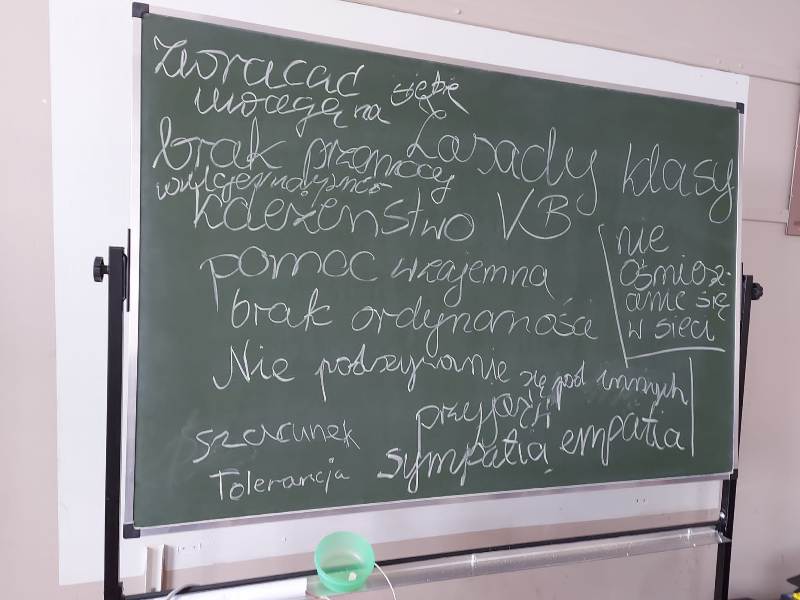 zwracać
uwagę na siebie
Zasady klasy
brak przemocy
VB
pomoc wzajemna
brak ordynarności
nie
ośmiesz-
anie się
w sieci
Nie podszywanie się pod innych
przyjaźń
szacunek
sympatia empatia
Tolerancja